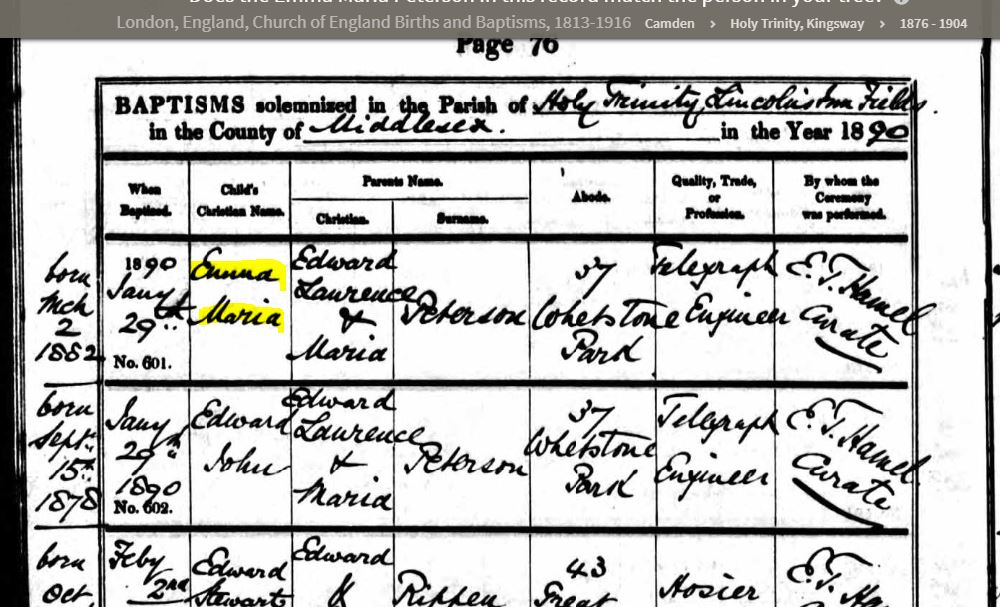 Does the Emma Maria Peterson in this record match the person in your tree?
London, England, Church of England Births and Baptisms, 1813-1916 Camden > Holy Trinity, Kingsway > 1876 - 1904
Page 76
BAPTISMS solemnized in the Parish of Holy Trinity Lincolns Inn Fields.
in the County of Middlesex. in the Year 1890
When Baptized.
Child's Christian Name.
Parents Name.
Christian.
Surname.
Abode.
Quality, Trade, or Profession.
By whom the Ceremony was performed.
born Mch 2 1882
1890 Jany 29th
No. 601.
Emma Maria
Edward Laurence & Maria
Peterson
37 Whetstone Park
Telegraph Engineer
E. T. Hamel Curate
born Sept. 15th 1878
Jany 29th 1890
No. 602.
Edward John
Edward Laurence & Maria
Peterson
37 Whetstone Park
Telegraph Engineer
E. T. Hamel Curate
born Oct.
Feby 2nd
Edward Stewart
Edward &
Rippen
43 Great
Hosier
E. T. Ha